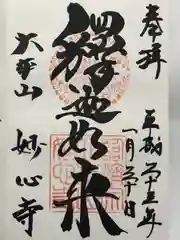 奉拝
平成二十五年
一月二十日
釋迦如来
山 妙心寺